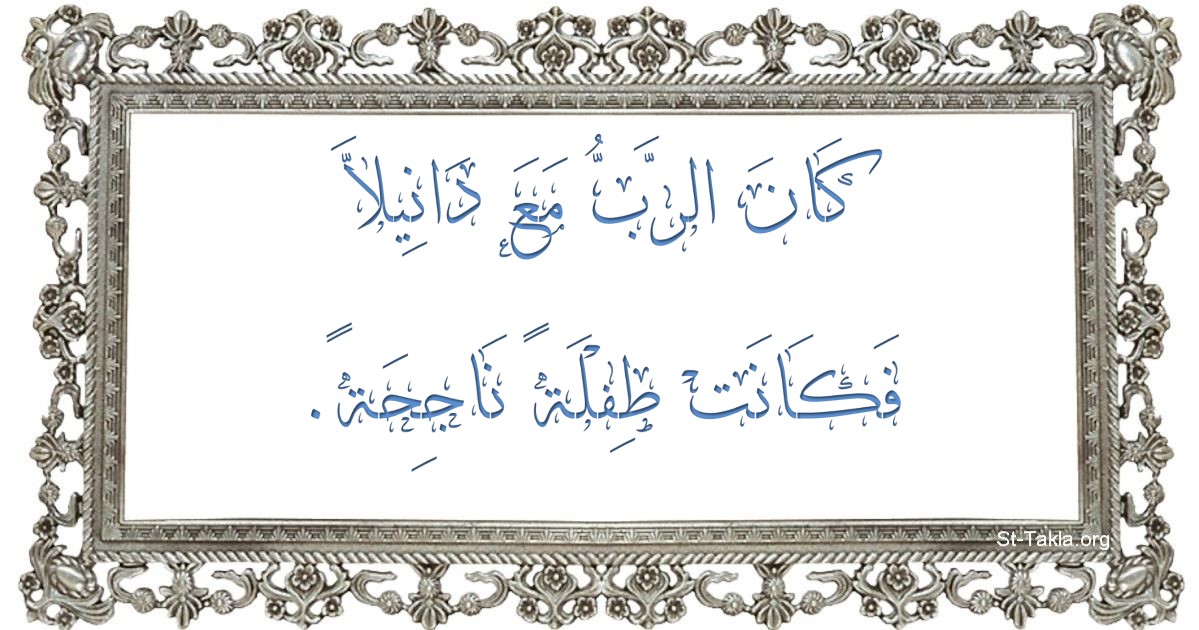 كَانَ الرَّبُّ مَعَ دَانِيلاَّ
فَكَانَتْ طِفْلَةً نَاجِحَةً.
St-Takla.org